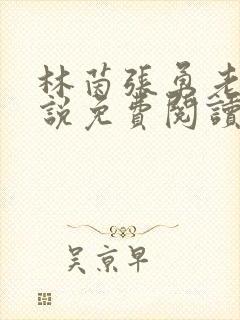 林茵張勇老
說免費閱讀
吳京早